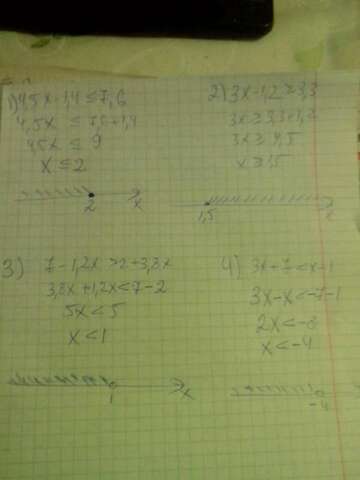 1) 4,5x-1,4 ≤ 7,6
4,5x ≤ 7,6+1,4
4,5x ≤ 9
x ≤ 2
2 x
2) 3x-1,2 ≥ 3,3
3x ≥ 3,3+1,2
3x ≥ 4,5
x ≥ 1,5
1,5 x
3) 7-1,2x > 2+3,8x
3,8x+1,2x < 7-2
5x < 5
x < 1
1 x
4) 3x+7 < x-1
3x-x < -7-1
2x < -8
x < -4
-4